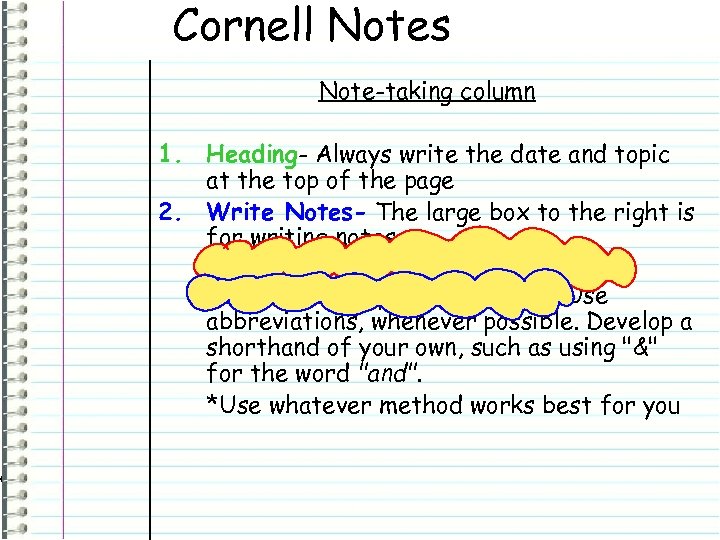 Cornell Notes
Note-taking column
1. Heading- Always write the date and topic
at the top of the page
2. Write Notes- The large box to the right is
for writing notes
Use
abbreviations, whenever possible. Develop a
shorthand of your own, such as using "&"
for the word "and".
*Use whatever method works best for you